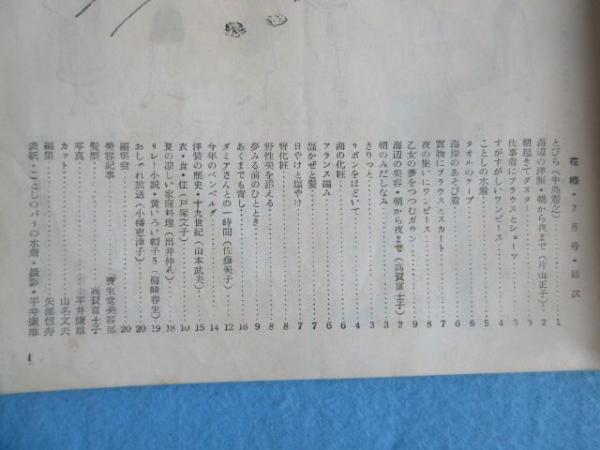 花椿・7月号・目次
とびら(牛島憲之)……1
海辺の洋服・朝から夜まで(片山正子)…2
朝起きてダスター……3
仕事着にブラウスとショーツ……3
すがすがしいワンピース……4
ことしの水着……5
タオルのケープ……6
海岸のあそび着……6
買物にブラウスとスカート……7
夜の集いにワンピース……8
乙女の夢をつつむガウン……9
海辺の美容・朝から夜まで(高賀富士子)2
朝のみだしなみ……3
きりっと……4
リボンをほどいて……4
海の化粧……6
フランス編み……6
塩かぜと髪……7
日やけと塩やけ……7
脊化粧……8
野性美を添える……8
夢みる前のひととき……9
あくまでも青し……16
ダミアさんとの一時間(佐藤美子)……12
今年のペンペルダ……14
洋装の歴史・十九世紀(山本武夫)……15
衣・食・住(戸塚文子)……10
夏の涼しい家庭料理(出井伸式)……18
リレー小説・黄いろい帽子5(梅崎春生)…19
おしゃれ放送(小幡恵津子)……20
編集室……20
美容記事……資生堂美容部
髪型……高賀富士子
写真……平井康雄
カット……山名文夫
編集……矢部信寿
表紙・ことしのパリの水着・撮影・平井康雄